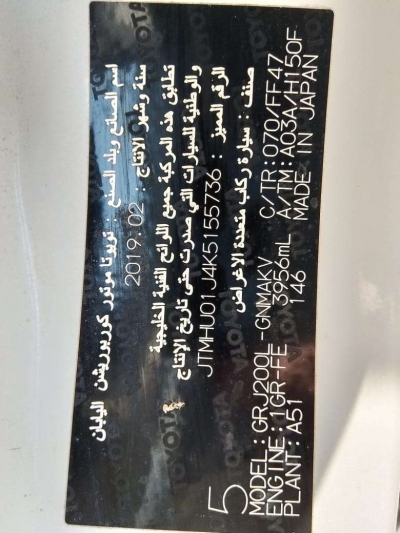 اسم الصانع وبلد الصنع : تويوتا موتور كوربوريشن اليابان
سنة وشهر الانتاج : 2019.02
تطابق هذه المركبة جميع اللوائح الفنية الخليجية
والوطنية للسيارات التي صدرت حتى تاريخ الإنتاج
الرقم المميز : JTMHU01J4K5155736
صنف : سيارة ركاب متعددة الاغراض
5
MODEL:GRJ200L-GNMAKV C/TR:070/FF47
ENGINE:1GR-FE 3956mL A/TM:A03A/H150F
PLANT:A51 146 MADE IN JAPAN